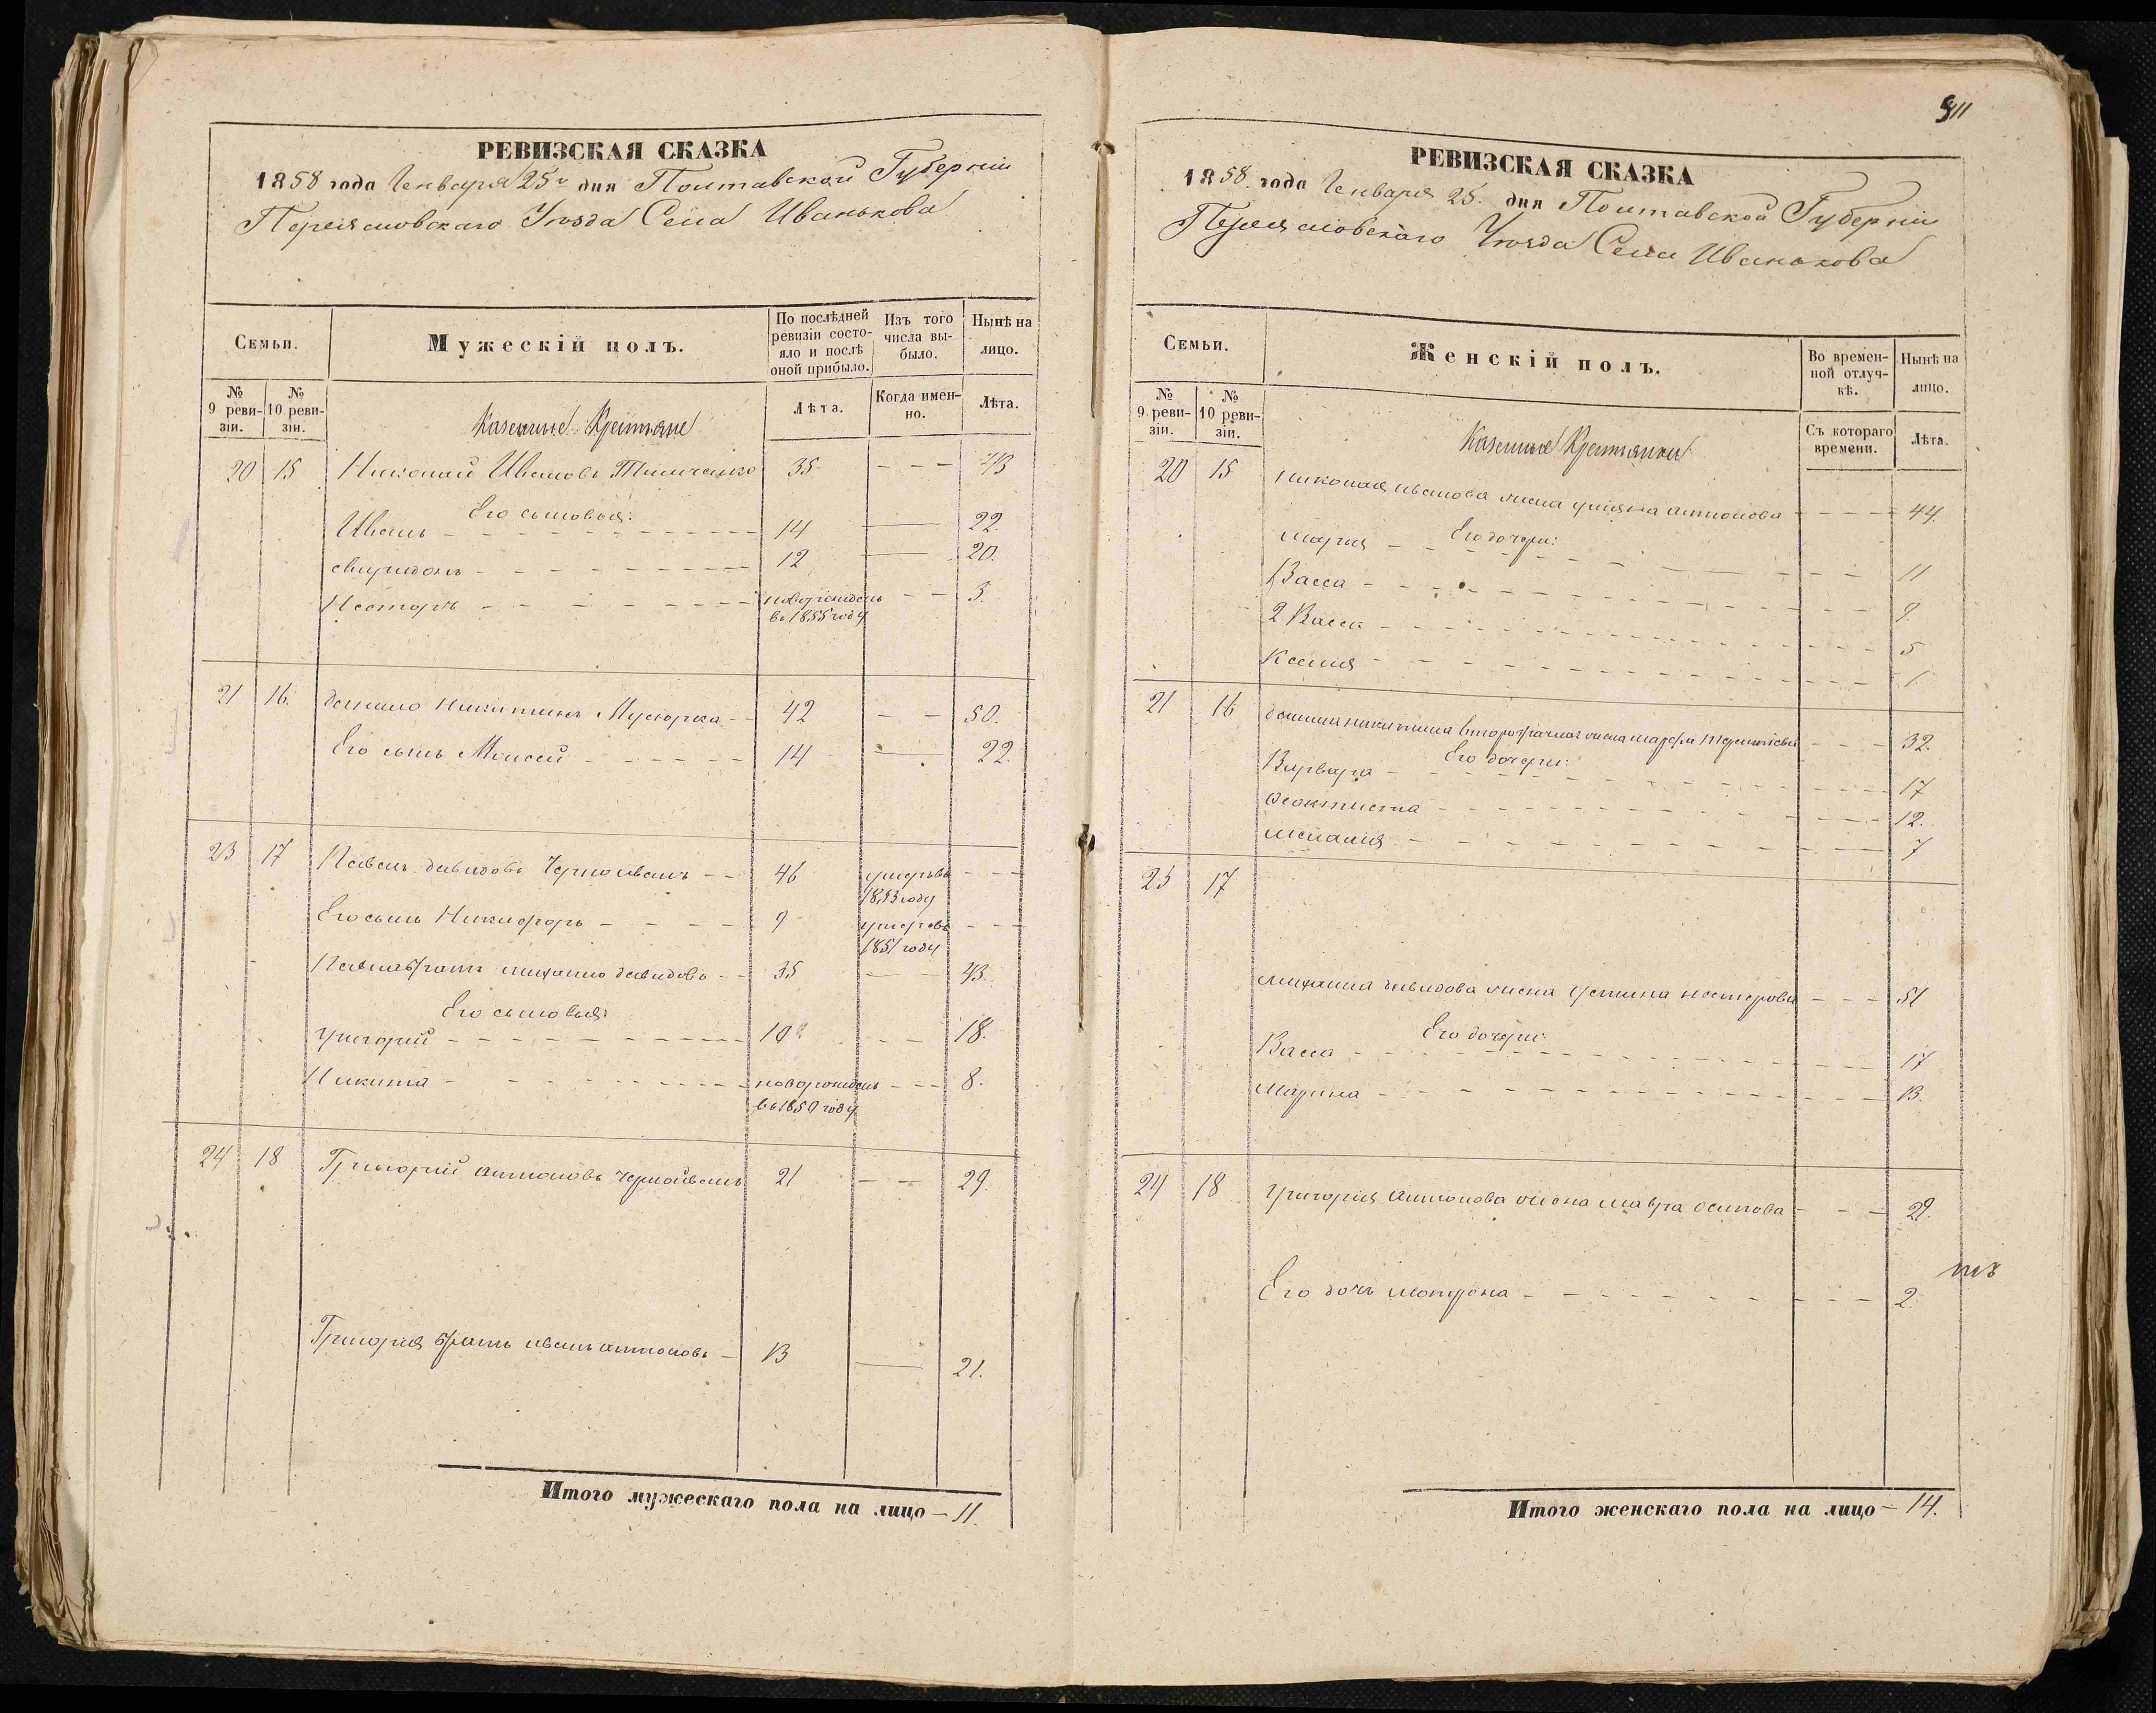 РЕВИЗСКАЯ СКАЗКА
1858 года Генваря 25 дня Полтавской Губерніи
Переяславскаго Уѣзда Села Иванькова
Семьи.
Мужескій полъ.
По послѣдней ревизіи состояло и послѣ оной прибыло.
Изъ того числа выбыло.
Нынѣ на лицо.
№ 9 ревизіи.
№ 10 ревизіи.
Казенные Крестьяне
Лѣта.
Когда именно.
Лѣта.
20 15 Николай Ивановъ 35 - - - 43
Его сыновья:
Иванъ 14 — 22.
Свиридонъ 12 — 20.
Несторъ новорожденъ - - 3.
въ 1855 году
21 16. Данило Никитинъ 42 - - 50.
Его сынъ Моисей 14 — 22.
23 17 Павелъ Давидовъ Черноиванъ 46 умеръ въ - - -
1853 году
Его сынъ Никифоръ 9 умеръ въ - - -
1851 году
Павла братъ Михайло Давидовъ 35 — 43.
Его сыновья:
Григорий 10 - - 18.
Никита новорожденъ - - 8.
въ 1850 году
24 18 Григорий Антоновъ Черноиванъ 21 - - 29.
Григория братъ Иванъ Антоновъ 13 — 21.
Итого мужескаго пола на лицо — 11.
511
РЕВИЗСКАЯ СКАЗКА
1858 года Генваря 25. дня Полтавской Губерніи
Переяславскаго Уѣзда Села Иванькова
Семьи.
Женскій полъ.
Во временной отлучкѣ.
Нынѣ на лицо.
№ 9 ревизіи.
№ 10 ревизіи.
Казенные Крестьянки
Съ котораго времени.
Лѣта.
20 15 Николая Иванова жена Антонова - - - 44.
Его дочери:
Марья 11
1 Васса 9
2 Васса 5
Ксения 1
21 16 Данила Никитина второбрачная жена Марфа Терентіева - - - 32.
Его дочери:
Варвара 17
Феоктиста 12.
Мелания 7
23 17
Михаила Давидова жена Устина Нестерова - - - 51
Его дочери:
Васса 17
Марина 13.
24 18 Григория Антонова жена Мавра Осипова - - - 29.
Его дочь Мотрона 2.
Итого женскаго пола на лицо — 14.